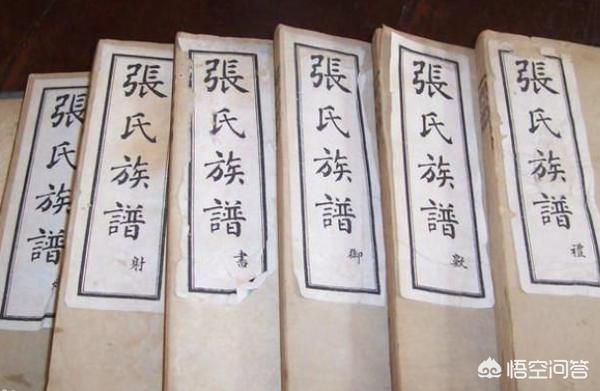 張氏族譜
張氏族譜
射
張氏族譜
書
張氏族譜
御
張氏族譜
數
張氏族譜
禮
悟空问答